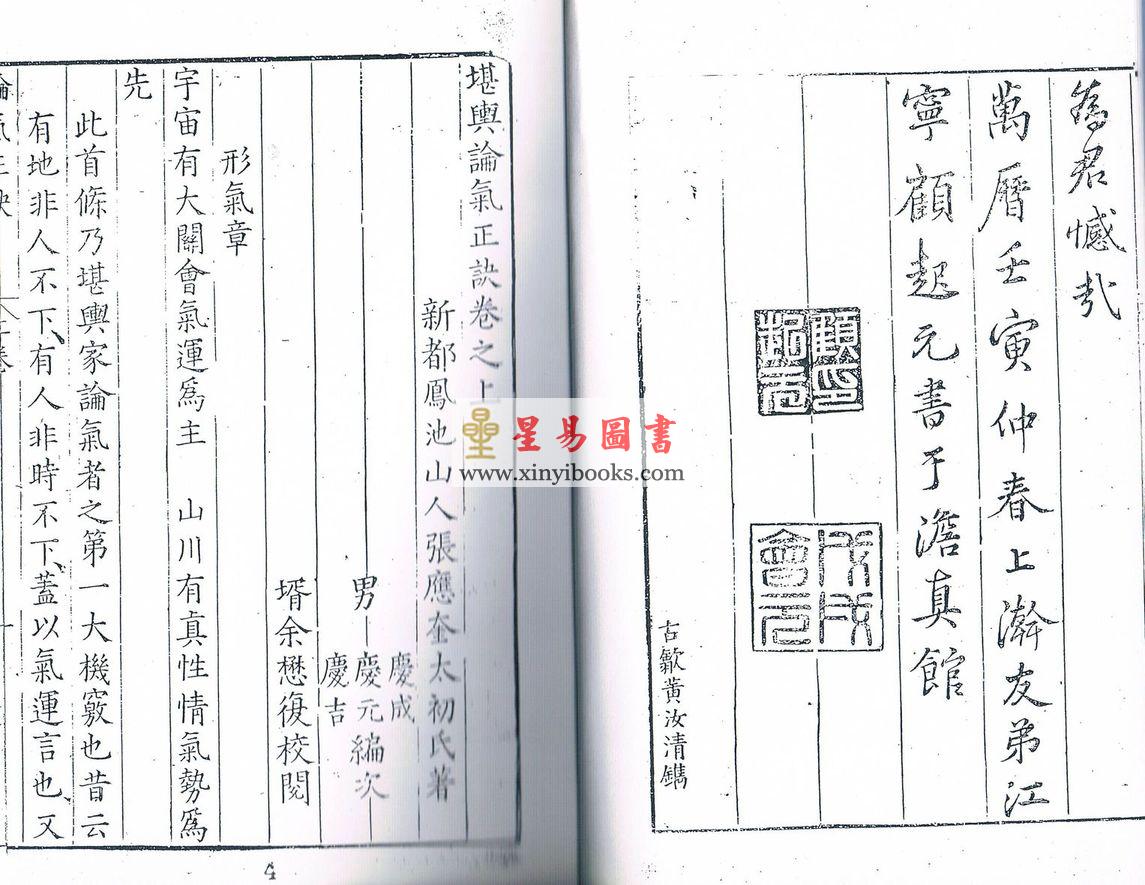 為君憾哉
萬曆壬寅仲春上澣友弟江
寧顧起元書于澹真館
顧起元印
戊戌會元
古歙黃汝清鐫
堪輿論氣正訣卷之上
新都鳳池山人張應奎太初氏著
慶成
男慶元編次
慶吉
壻余懋復校閱
形氣章
宇宙有大關會氣運爲主 山川有眞性情氣勢爲
先
此首條乃堪輿家論氣者之第一大機竅也昔云
有地非人不下、有人非時不下、蓋以氣運言也、又
星易圖書
www.xinyibooks.com
4